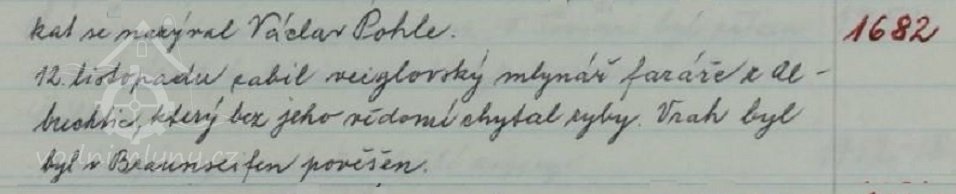 kat se nazýval Václav Pohle.
1682
12. listopadu zabil veiglovský mlynář faráře z Al-
brechtic, který bez jeho vědomí chytal ryby. Vrah byl
byl v Braunseifen pověšen.
vodnimlyny.cz